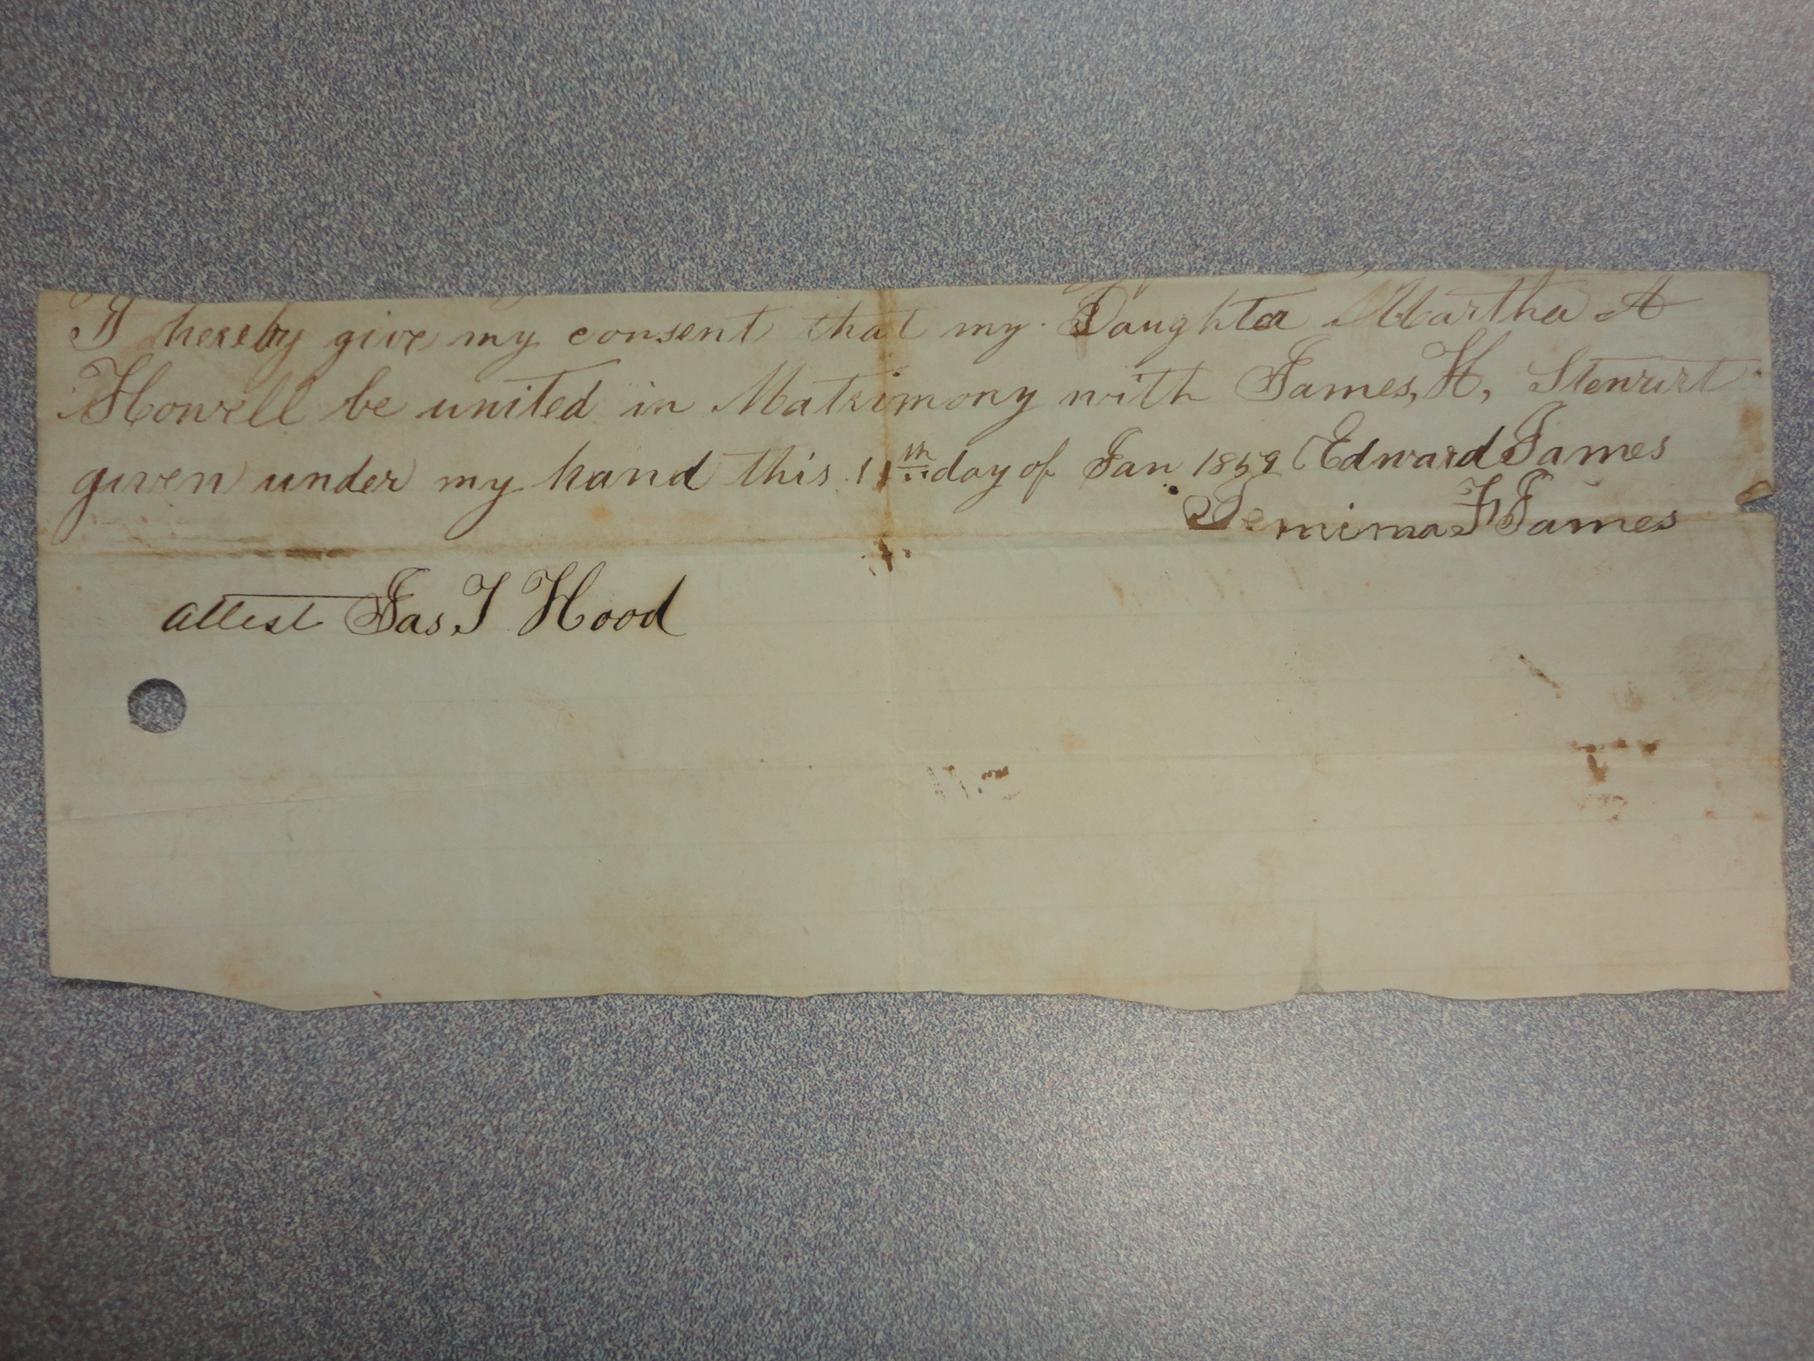 I hereby give my consent that my Daughter Martha A
Howell be united in Matrimony with James, H, Stewart
given under my hand this 11th day of Jan 1859 Edward James
Jemima F James
attest Jas T Hood